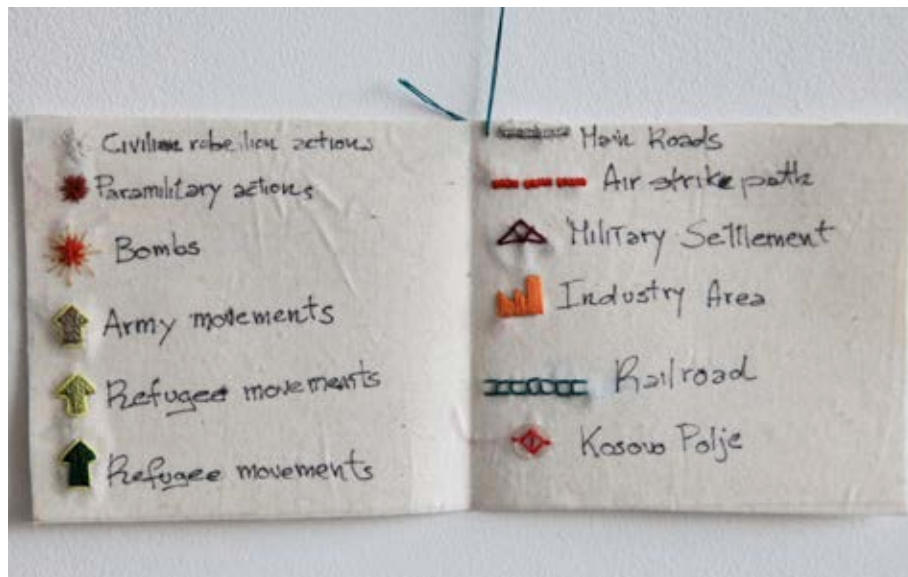 Civilian rebelion actions
Paramilitary actions
Bombs
Army movements
Refugee movements
Refugee movements
Main Roads
Air strike path
Military Settlement
Industry Area
Railroad
Kosovo Polje